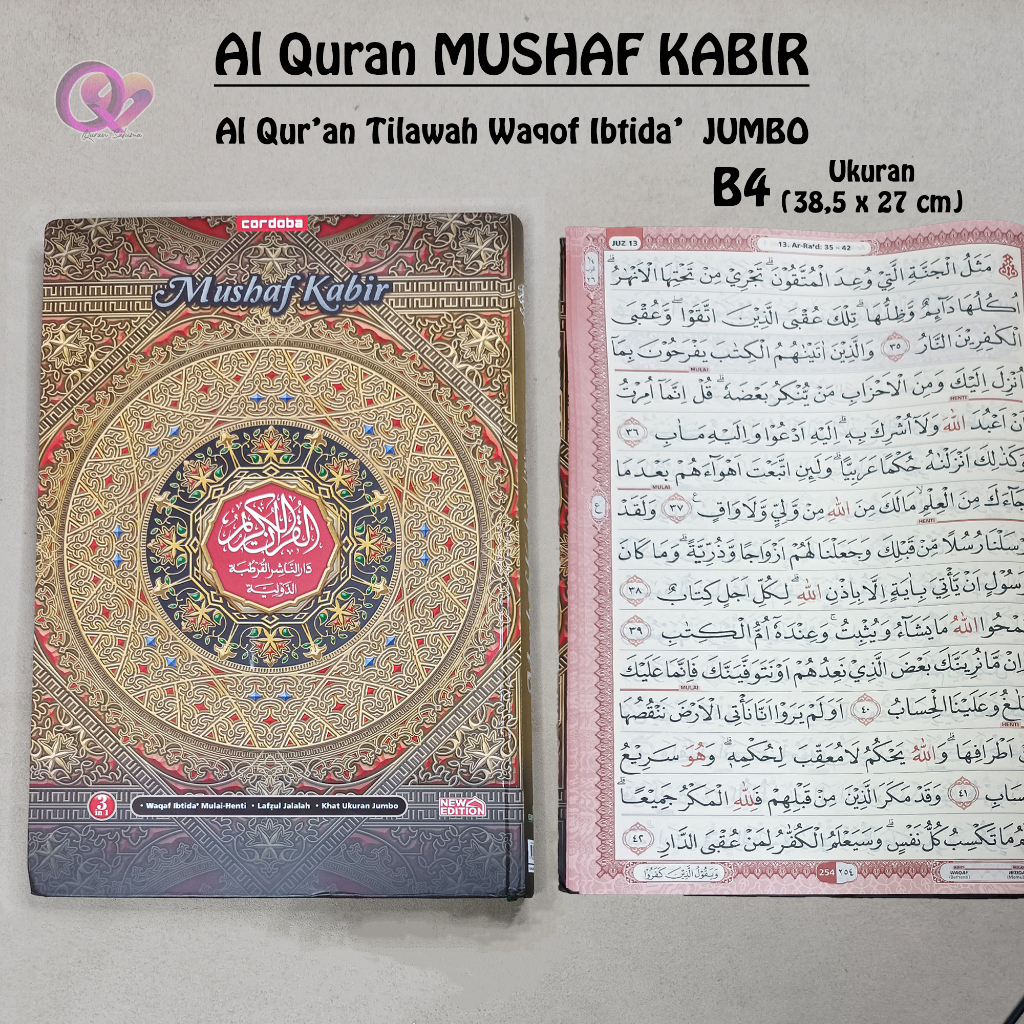 Al Quran MUSHAF KABIR
Quran Salama
Al Qur'an Tilawah Waqof Ibtida' JUMBO
B4 Ukuran
(38,5 x 27 cm)
cordoba
Mushaf Kabir
القرآن الكريم
دار الناشر القرطبة
الدولية
3 in 1
• Waqaf Ibtida' Mulai-Henti • Lafzul Jalalah • Khat Ukuran Jumbo
NEW EDITION
JUZ 13
13. Ar-Ra'd: 35 - 42
مَثَلُ الْجَنَّةِ الَّتِيْ وُعِدَ الْمُتَّقُوْنَۗ تَجْرِيْ مِنْ تَحْتِهَا الْاَنْهٰرُۗ
اُكُلُهَا دَاۤىِٕمٌ وَّظِلُّهَاۗ تِلْكَ عُقْبَى الَّذِيْنَ اتَّقَوْاۖ وَّعُقْبَى
الْكٰفِرِيْنَ النَّارُ ٣٥ وَالَّذِيْنَ اٰتَيْنٰهُمُ الْكِتٰبَ يَفْرَحُوْنَ بِمَآ
MULAI
اُنْزِلَ اِلَيْكَ وَمِنَ الْاَحْزَابِ مَنْ يُّنْكِرُ بَعْضَهٗۗ قُلْ اِنَّمَآ اُمِرْتُ
HENTI
اَنْ اَعْبُدَ اللّٰهَ وَلَآ اُشْرِكَ بِهٖۗ اِلَيْهِ اَدْعُوْا وَاِلَيْهِ مَاٰبِ ٣٦
وَكَذٰلِكَ اَنْزَلْنٰهُ حُكْمًا عَرَبِيًّاۗ وَلَىِٕنِ اتَّبَعْتَ اَهْوَاۤءَهُمْ بَعْدَمَا
MULAI
جَاۤءَكَ مِنَ الْعِلْمِ مَا لَكَ مِنَ اللّٰهِ مِنْ وَّلِيٍّ وَّلَا وَاقٍ ٣٧ وَلَقَدْ
HENTI
ع
رْسَلْنَا رُسُلًا مِّنْ قَبْلِكَ وَجَعَلْنَا لَهُمْ اَزْوَاجًا وَّذُرِّيَّةًۗ وَمَا كَانَ
رَسُوْلٍ اَنْ يَّأْتِيَ بِاٰيَةٍ اِلَّا بِاِذْنِ اللّٰهِۗ لِكُلِّ اَجَلٍ كِتَابٌ ٣٨
يَمْحُوا اللّٰهُ مَا يَشَاۤءُ وَيُثْبِتُۚ وَعِنْدَهٗٓ اُمُّ الْكِتٰبِ ٣٩
وَاِنْ مَّا نُرِيَنَّكَ بَعْضَ الَّذِيْ نَعِدُهُمْ اَوْ نَتَوَفَّيَنَّكَ فَاِنَّمَا عَلَيْكَ
MULAI
الْبَلٰغُ وَعَلَيْنَا الْحِسَابُ ٤٠ اَوَلَمْ يَرَوْا اَنَّا نَأْتِى الْاَرْضَ نَنْقُصُهَا
اَطْرَافِهَاۗ وَاللّٰهُ يَحْكُمُ لَا مُعَقِّبَ لِحُكْمِهٖۗ وَهُوَ سَرِيْعُ
سَابِ ٤١ وَقَدْ مَكَرَ الَّذِيْنَ مِنْ قَبْلِهِمْ فَلِلّٰهِ الْمَكْرُ جَمِيْعًاۗ
HENTI
لَمُ مَا تَكْسِبُ كُلُّ نَفْسٍۗ وَسَيَعْلَمُ الْكُفّٰرُ لِمَنْ عُقْبَى الدَّارِ ٤٢
وَيَقُوْلُ الَّذِيْنَ كَفَرُوْا
254 ٢٥٤
WAQAF